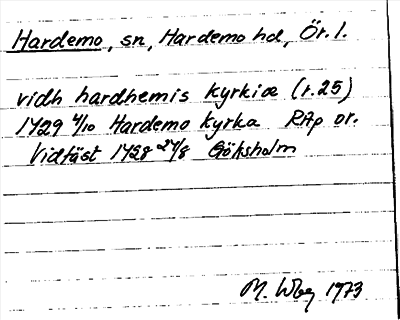 Hardemo, sn, Hardemo hd, Ör. l.
vidh hardhemis kyrkiæ (r. 25)
1429 4/10 Hardemo kyrka RAp or.
Vidfäst 1428 27/8 Göksholm
M. Wbg 1973